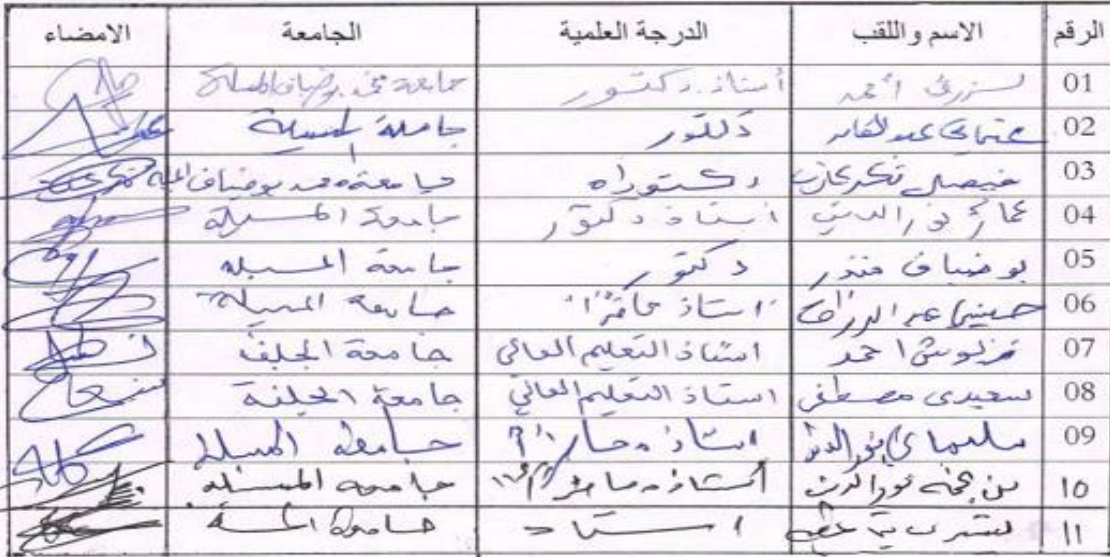 الرقم الاسم واللقب الدرجة العلمية الجامعة الامضاء
01 أحمد أستاذ دكتور جامعة محمد بوضياف المسيلة
02 عثماني عبد القادر دكتور جامعة المسيلة
03 فيصل دكتوراه جامعة محمد بوضياف
04 نور الدين أستاذ دكتور جامعة المسيلة
05 بوضياف منذر دكتور جامعة المسيلة
06 حسيني عبد الرزاق استاذ محاضر أ جامعة المسيلة
07 احمد استاذ التعليم العالي جامعة الجلفة
08 سعيدي مصطفى استاذ التعليم العالي جامعة الجلفة
09 سليماني نور الدين استاذ جامعة المسيلة
10 بن نور الدين أستاذ محاضر جامعة المسيلة
11 استاذ جامعة